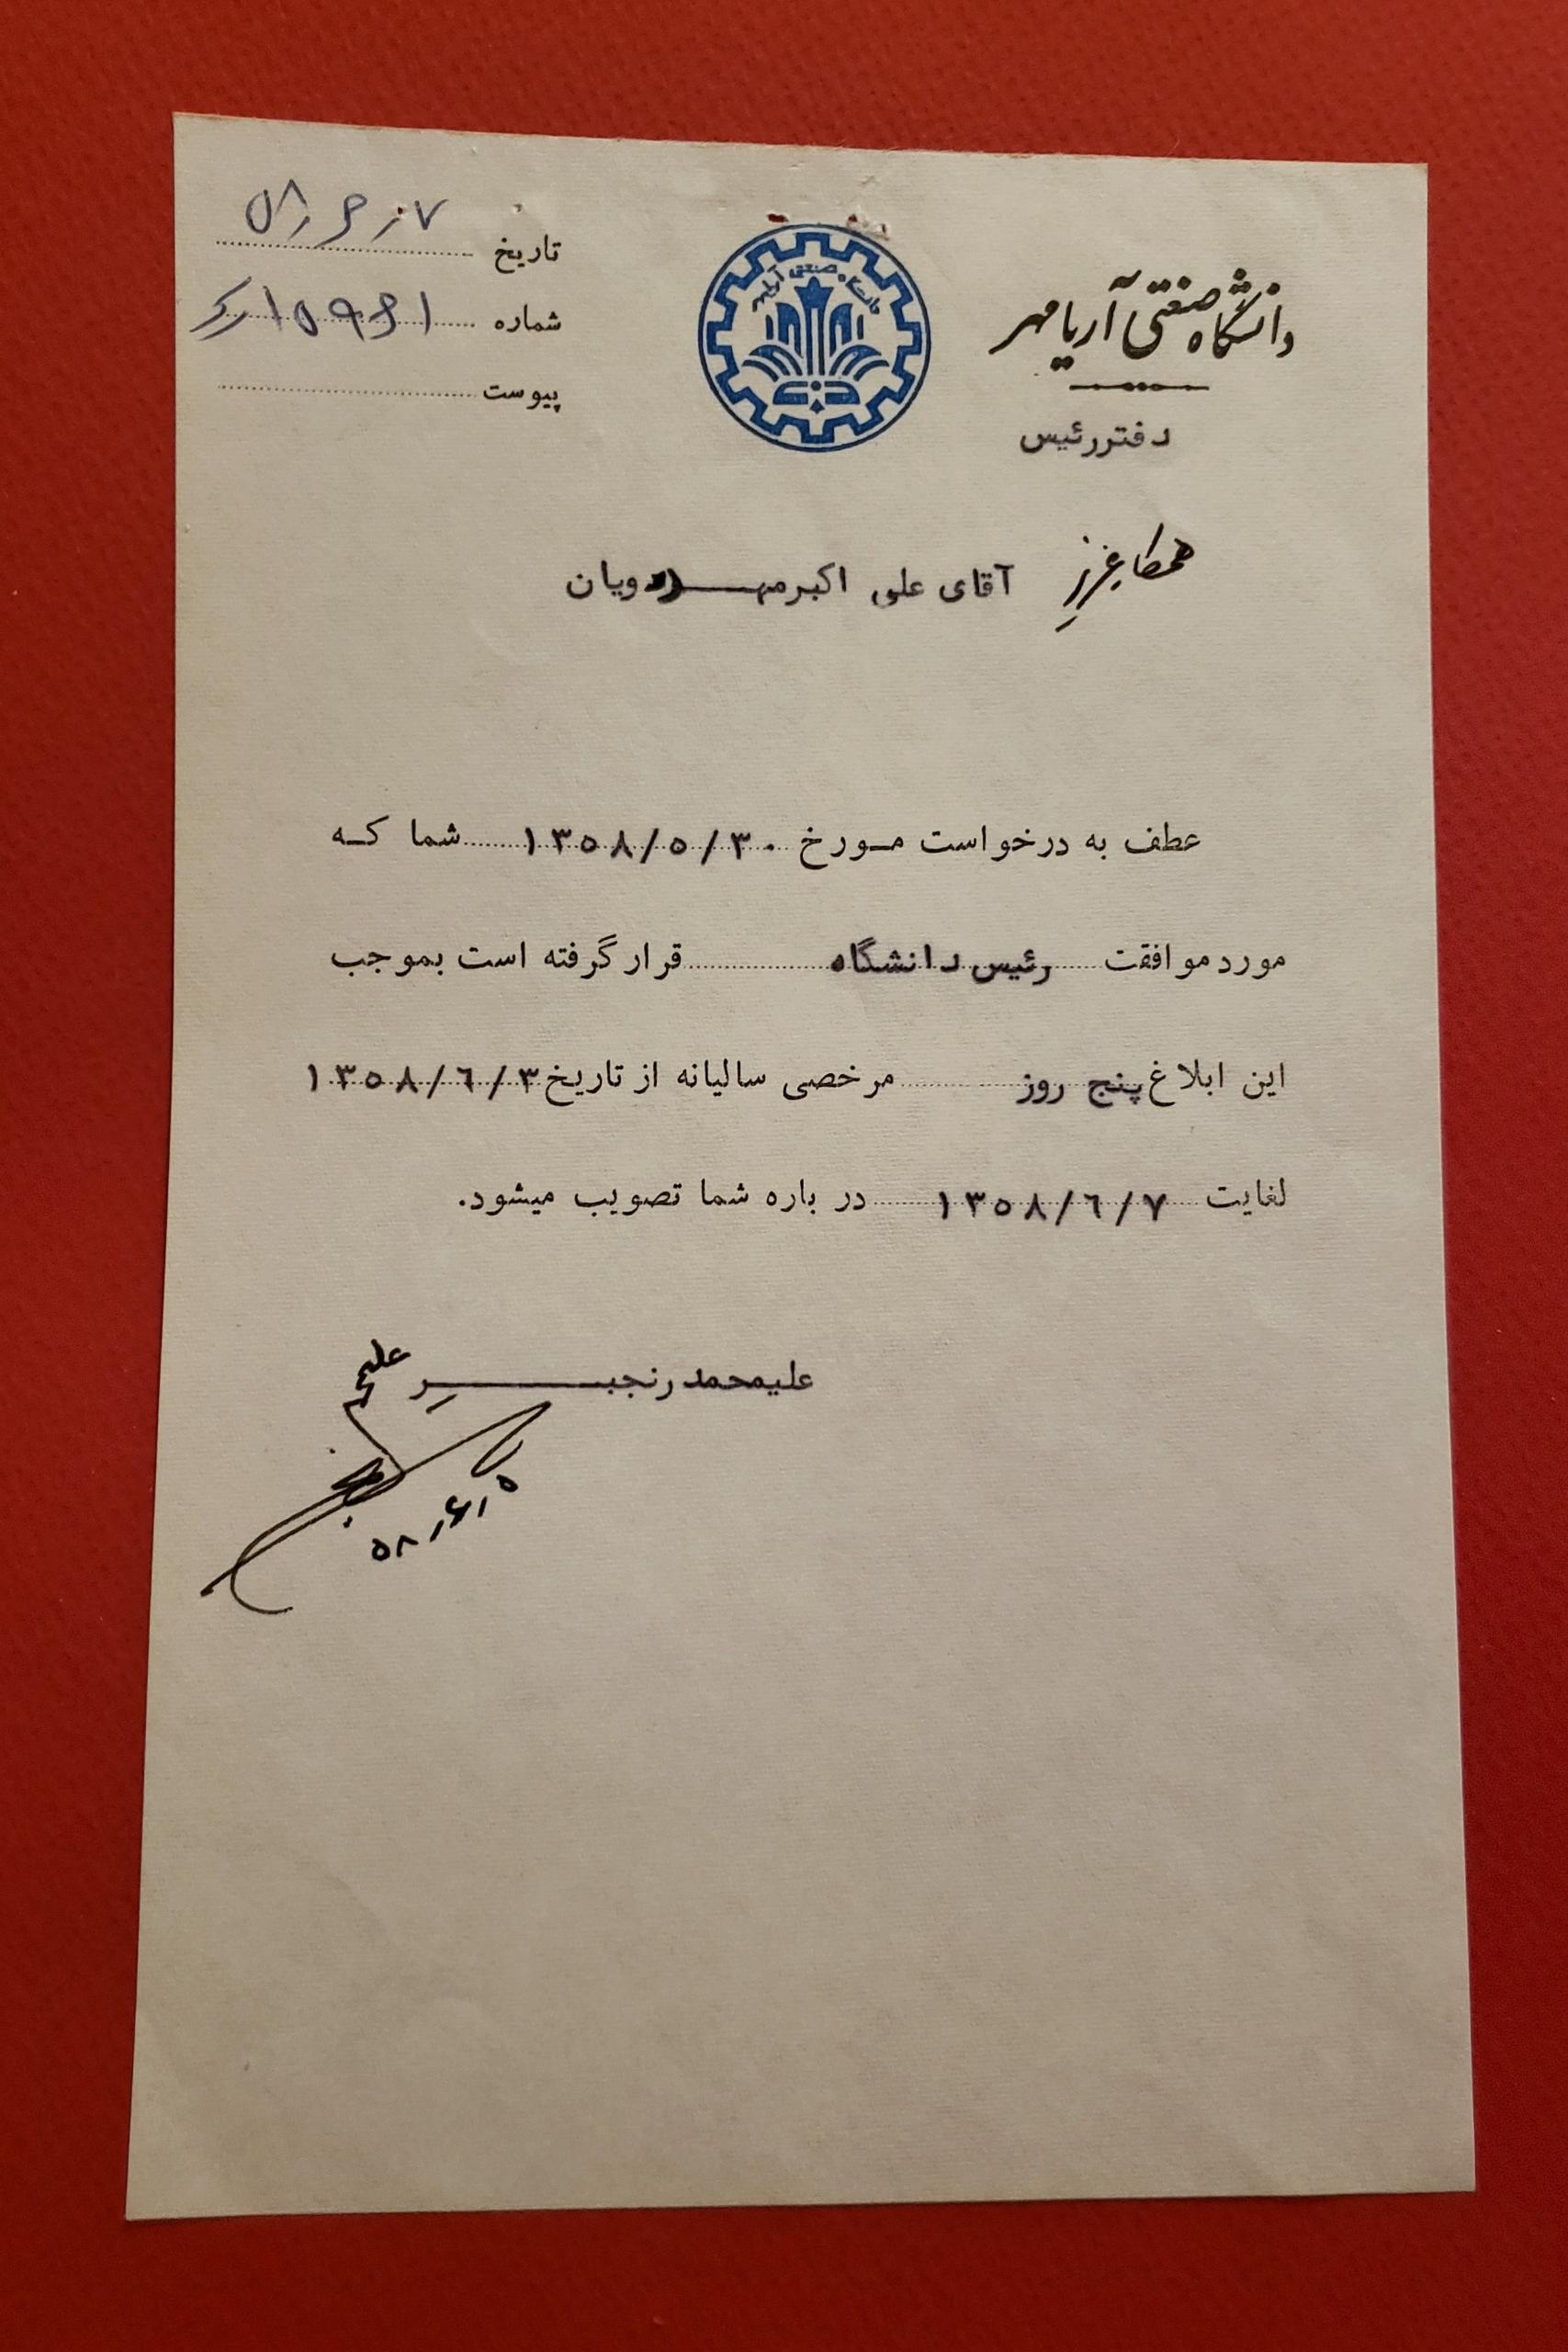 دانشگاه صنعتی آریامهر
دفتر رئیس
تاریخ ۵۸/۶/۷
شماره
پیوست
دانشگاه صنعتی آریامهر
همکار عزیز آقای علی اکبر مهردویان
عطف به درخواست مورخ ۱۳۵۸/۵/۳۰ شما که
مورد موافقت رئیس دانشگاه قرار گرفته است بموجب
این ابلاغ پنج روز مرخصی سالیانه از تاریخ ۱۳۵۸/۶/۳
لغایت ۱۳۵۸/۶/۷ در باره شما تصویب میشود.
علیمحمد رنجبر
۵۸/۶/۵